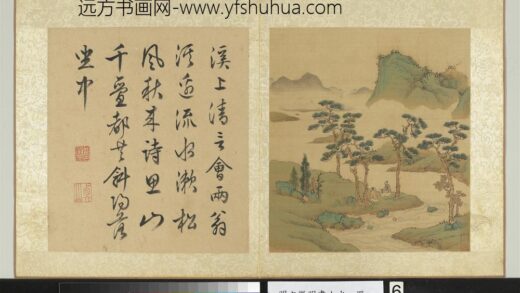 远方书画网-www.yfshuhua.com
溪上清言會兩翁
溪邊流水漱松
風秋來詩思山
千疊都共斜陽落
坐中
6